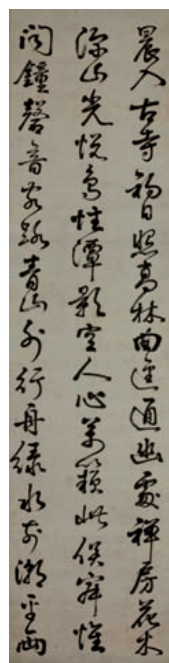 晨入古寺初日照高林曲逕通幽處禪房花木
深山光悅鳥性潭影空人心萬籟此俱寂惟
聞鐘磬音客路青山外行舟綠水前潮平兩